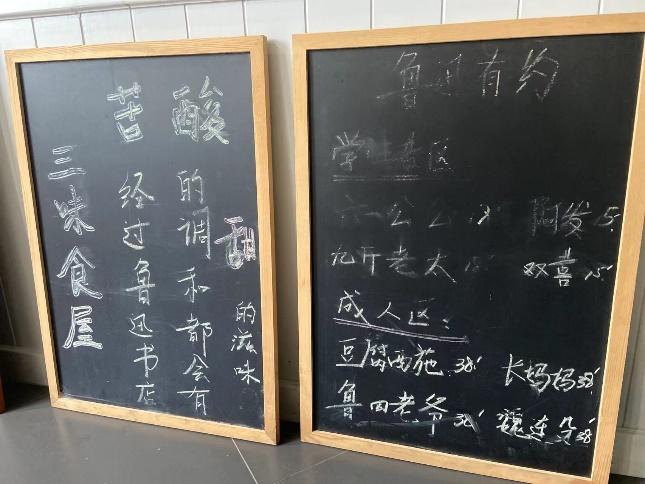 三味食屋
苦 经过鲁迅书店
酸 的调和都会有
甜 的滋味
鲁迅有约
学生专区
六一公公 阳发
九斤老太 双喜 15'
成人区:
豆腐西施 38' 长妈妈 38'
鲁四老爷 38' 魏连殳 38'